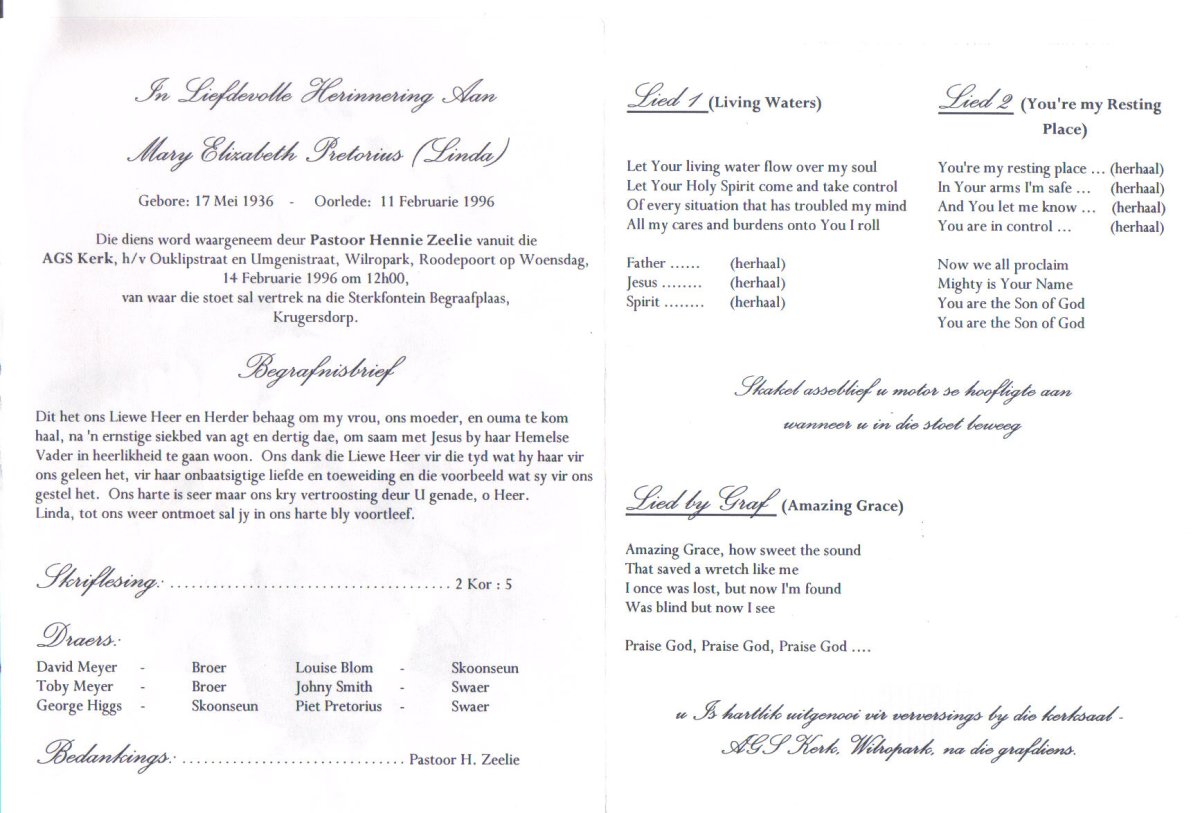 In Liefdevolle Herinnering Aan
Mary Elizabeth Pretorius (Linda)
Gebore: 17 Mei 1936 - Oorlede: 11 Februarie 1996
Die diens word waargeneem deur Pastoor Hennie Zeelie vanuit die
AGS Kerk, h/v Ouklipstraat en Umgenistraat, Wilropark, Roodepoort op Woensdag,
14 Februarie 1996 om 12h00,
van waar die stoet sal vertrek na die Sterkfontein Begraafplaas,
Krugersdorp.
Begrafnisbrief
Dit het ons Liewe Heer en Herder behaag om my vrou, ons moeder, en ouma te kom
haal, na 'n ernstige siekbed van agt en dertig dae, om saam met Jesus by haar Hemelse
Vader in heerlikheid te gaan woon. Ons dank die Liewe Heer vir die tyd wat hy haar vir
ons geleen het, vir haar onbaatsigtige liefde en toeweiding en die voorbeeld wat sy vir ons
gestel het. Ons harte is seer maar ons kry vertroosting deur U genade, o Heer.
Linda, tot ons weer ontmoet sal jy in ons harte bly voortleef.
Skriflesing: ..................................... 2 Kor : 5
Draers:
David Meyer - Broer Louise Blom - Skoonseun
Toby Meyer - Broer Johny Smith - Swaer
George Higgs - Skoonseun Piet Pretorius - Swaer
Bedankings: .............................. Pastoor H. Zeelie
Lied 1 (Living Waters)
Let Your living water flow over my soul
Let Your Holy Spirit come and take control
Of every situation that has troubled my mind
All my cares and burdens onto You I roll
Father ...... (herhaal)
Jesus ........ (herhaal)
Spirit ........ (herhaal)
Lied 2 (You're my Resting
Place)
You're my resting place ... (herhaal)
In Your arms I'm safe ... (herhaal)
And You let me know ... (herhaal)
You are in control ... (herhaal)
Now we all proclaim
Mighty is Your Name
You are the Son of God
You are the Son of God
Skakel asseblief u motor se hoofligte aan
wanneer u in die stoet beweeg
Lied by Graf (Amazing Grace)
Amazing Grace, how sweet the sound
That saved a wretch like me
I once was lost, but now I'm found
Was blind but now I see
Praise God, Praise God, Praise God ....
u Is hartlik uitgenooi vir verversings by die kerksaal -
AGS Kerk, Wilropark, na die grafdiens.